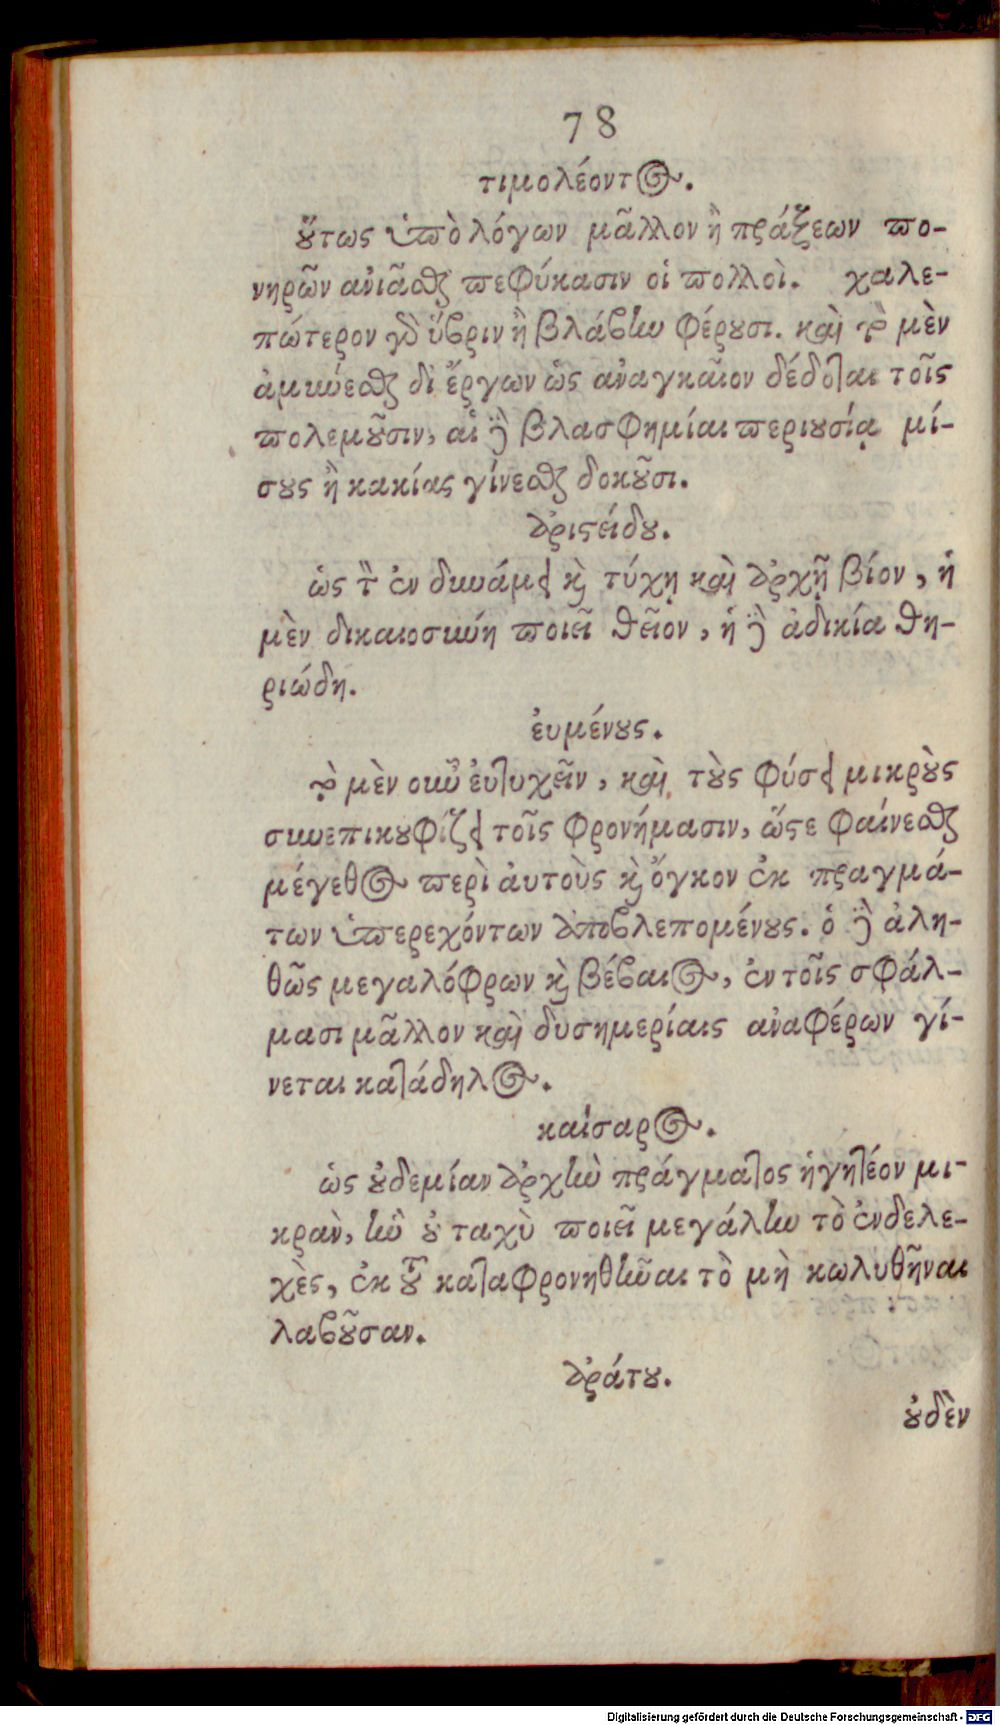 78
τιμολέοντος.
οὕτως ὑπὸ λόγων μᾶλλον ἢ πράξεων πο-
νηρῶν ἀνιᾶσθαι πεφύκασιν οἱ πολλοὶ. χαλε-
πώτερον γὰρ ὕβριν ἢ βλάβην φέρουσι. καὶ τὸ μὲν
ἀμύνεσθαι δι ἔργων ὡς ἀναγκαῖον δέδοται τοῖς
πολεμοῦσιν, αἱ δὲ βλασφημίαι περιουσίᾳ μί-
σους ἢ κακίας γίνεσθαι δοκοῦσι.
ἀριστείδου.
ὡς τὸν ἐν δυνάμει καὶ τύχῃ καὶ ἀρχῇ βίον, ἡ
μὲν δικαιοσύνη ποιεῖ θεῖον, ἡ δὲ ἀδικία θη-
ριώδη.
ἐυμένους.
τὸ μὲν οὖν ἐυτυχεῖν, καὶ τοὺς φύσει μικροὺς
συνεπικουφίζει τοῖς φρονήμασιν, ὥστε φαίνεσθαι
μέγεθος περὶ ἀυτοὺς καὶ ὄγκον ἐκ πραγμά-
των ὑπερεχόντων ἀποβλεπομένους. ὁ δὲ ἀλη-
θῶς μεγαλόφρων καὶ βέβαιος, ἐν τοῖς σφάλ-
μασι μᾶλλον καὶ δυσημερίαις ἀναφέρων γί-
νεται κατάδηλος.
καίσαρος.
ὡς οὐδεμίαν ἀρχὴν πράγματος ἡγητέον μι-
κρὰν, ἣν οὐ ταχὺ ποιεῖ μεγάλην τὸ ἐνδελε-
χὲς, ἐκ τοῦ καταφρονηθῆναι τὸ μὴ κωλυθῆναι
λαβοῦσαν.
ἀράτου.
οὐδὲν
Digitalisierung gefördert durch die Deutsche Forschungsgemeinschaft - DFG